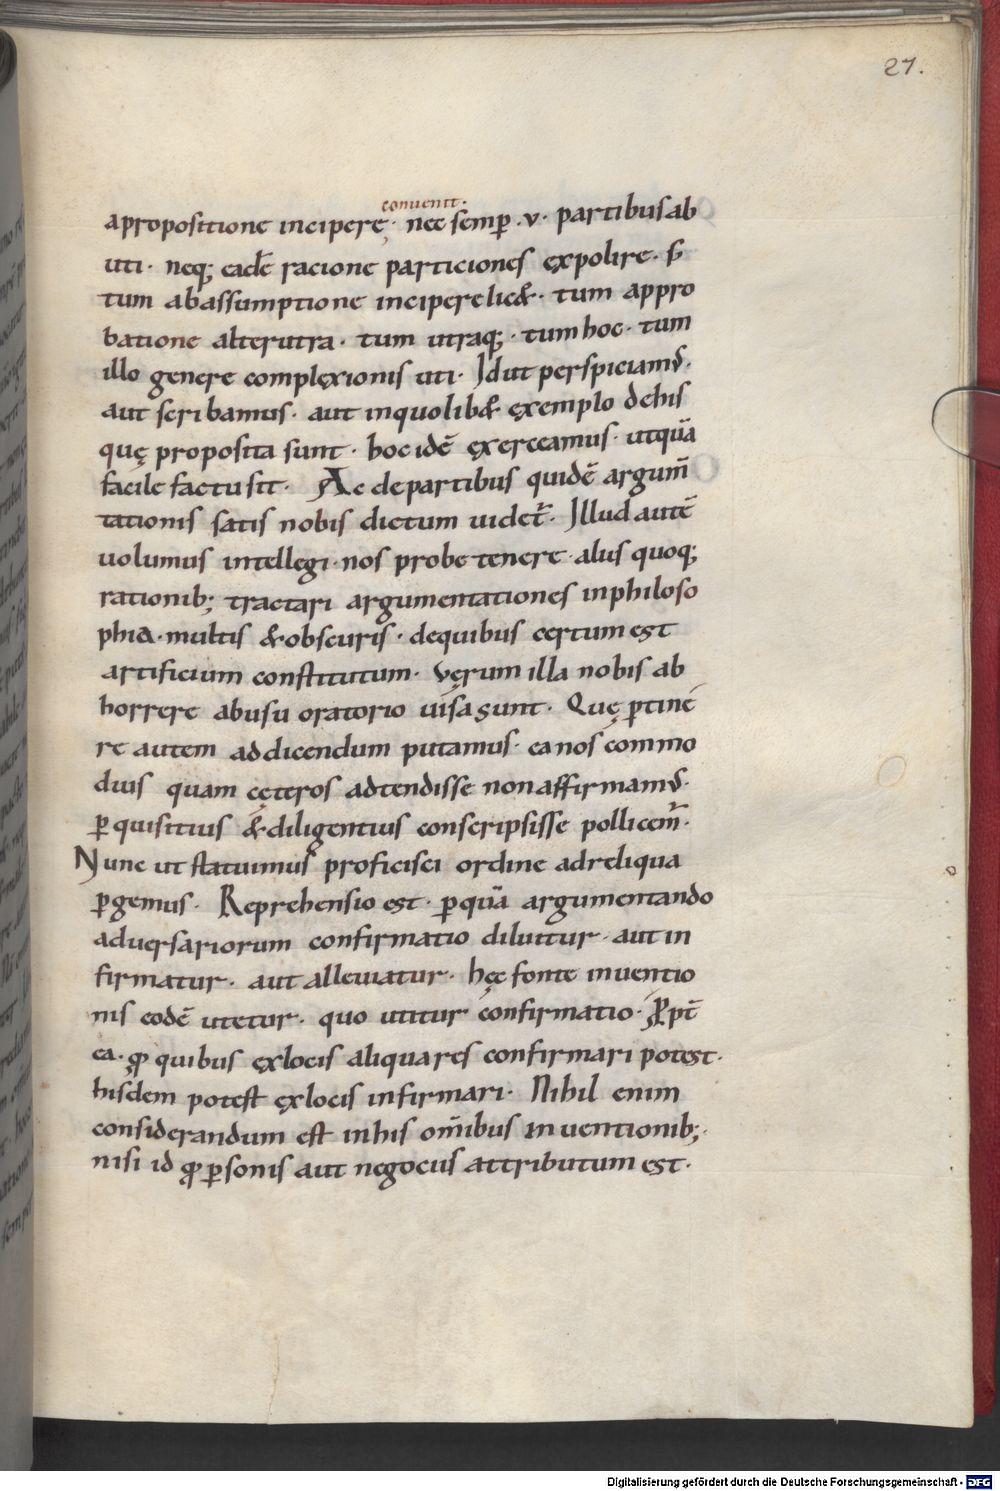 27.
conuenit.
apropositione incipere· nec semꝑ ·v· partibus ab
uti· neq; eadē racione particiones ęxpolire· s̄
tum abassumptione incipere lic&· tum appro
batione alterutra· tum utraq;· tum hoc· tum
illo genere complęxionis uti· Id ut perspiciam᷒·
aut scribamus· aut inquolib& ęxemplo dehis
quę proposita sunt· hoc idē ęxerceamus· utquā
facile factu sit· Ac departibus quidē argum̄
tationis satis nobis dictum uidet᷑· Illud autē
uolumus intellegi· nos probe tenere· aliis quoq;
rationib; tractari argumentationes inphiloso
phia· multis &obscuris· dequibus certum ęst
artificium constitutum· Vęrum illa nobis ab
horrere abusu oratorio uisa sunt· Quę ꝑtine
re autem addicendum putamus· ea nos commo
dius quam cęteros adtendisse non affirmam᷒·
ꝑquisitius &diligentius conscripsisse pollicem᷑·
Nunc ut statuimus proficisci ordine adreliqua
ꝑgemus· Reprehensio est· ꝑquā argumentando
aduersariorum confirmatio diluitur· aut in
firmatur· aut alleuiatur· hęc fonte inuentio
nis eodē utetur· quo utitur confirmatio· Ꝓpt̄
ea· ꝓ quibus ęxlocis aliqua res confirmari potęst·
hisdem potest ęxlocis infirmari· Nihil enim
considerandum est inhis om̄ibus inuentionib;·
nisi id ꝓ ꝑsonis aut negociis attributum ęst·
Digitalisierung gefördert durch die Deutsche Forschungsgemeinschaft - DFG